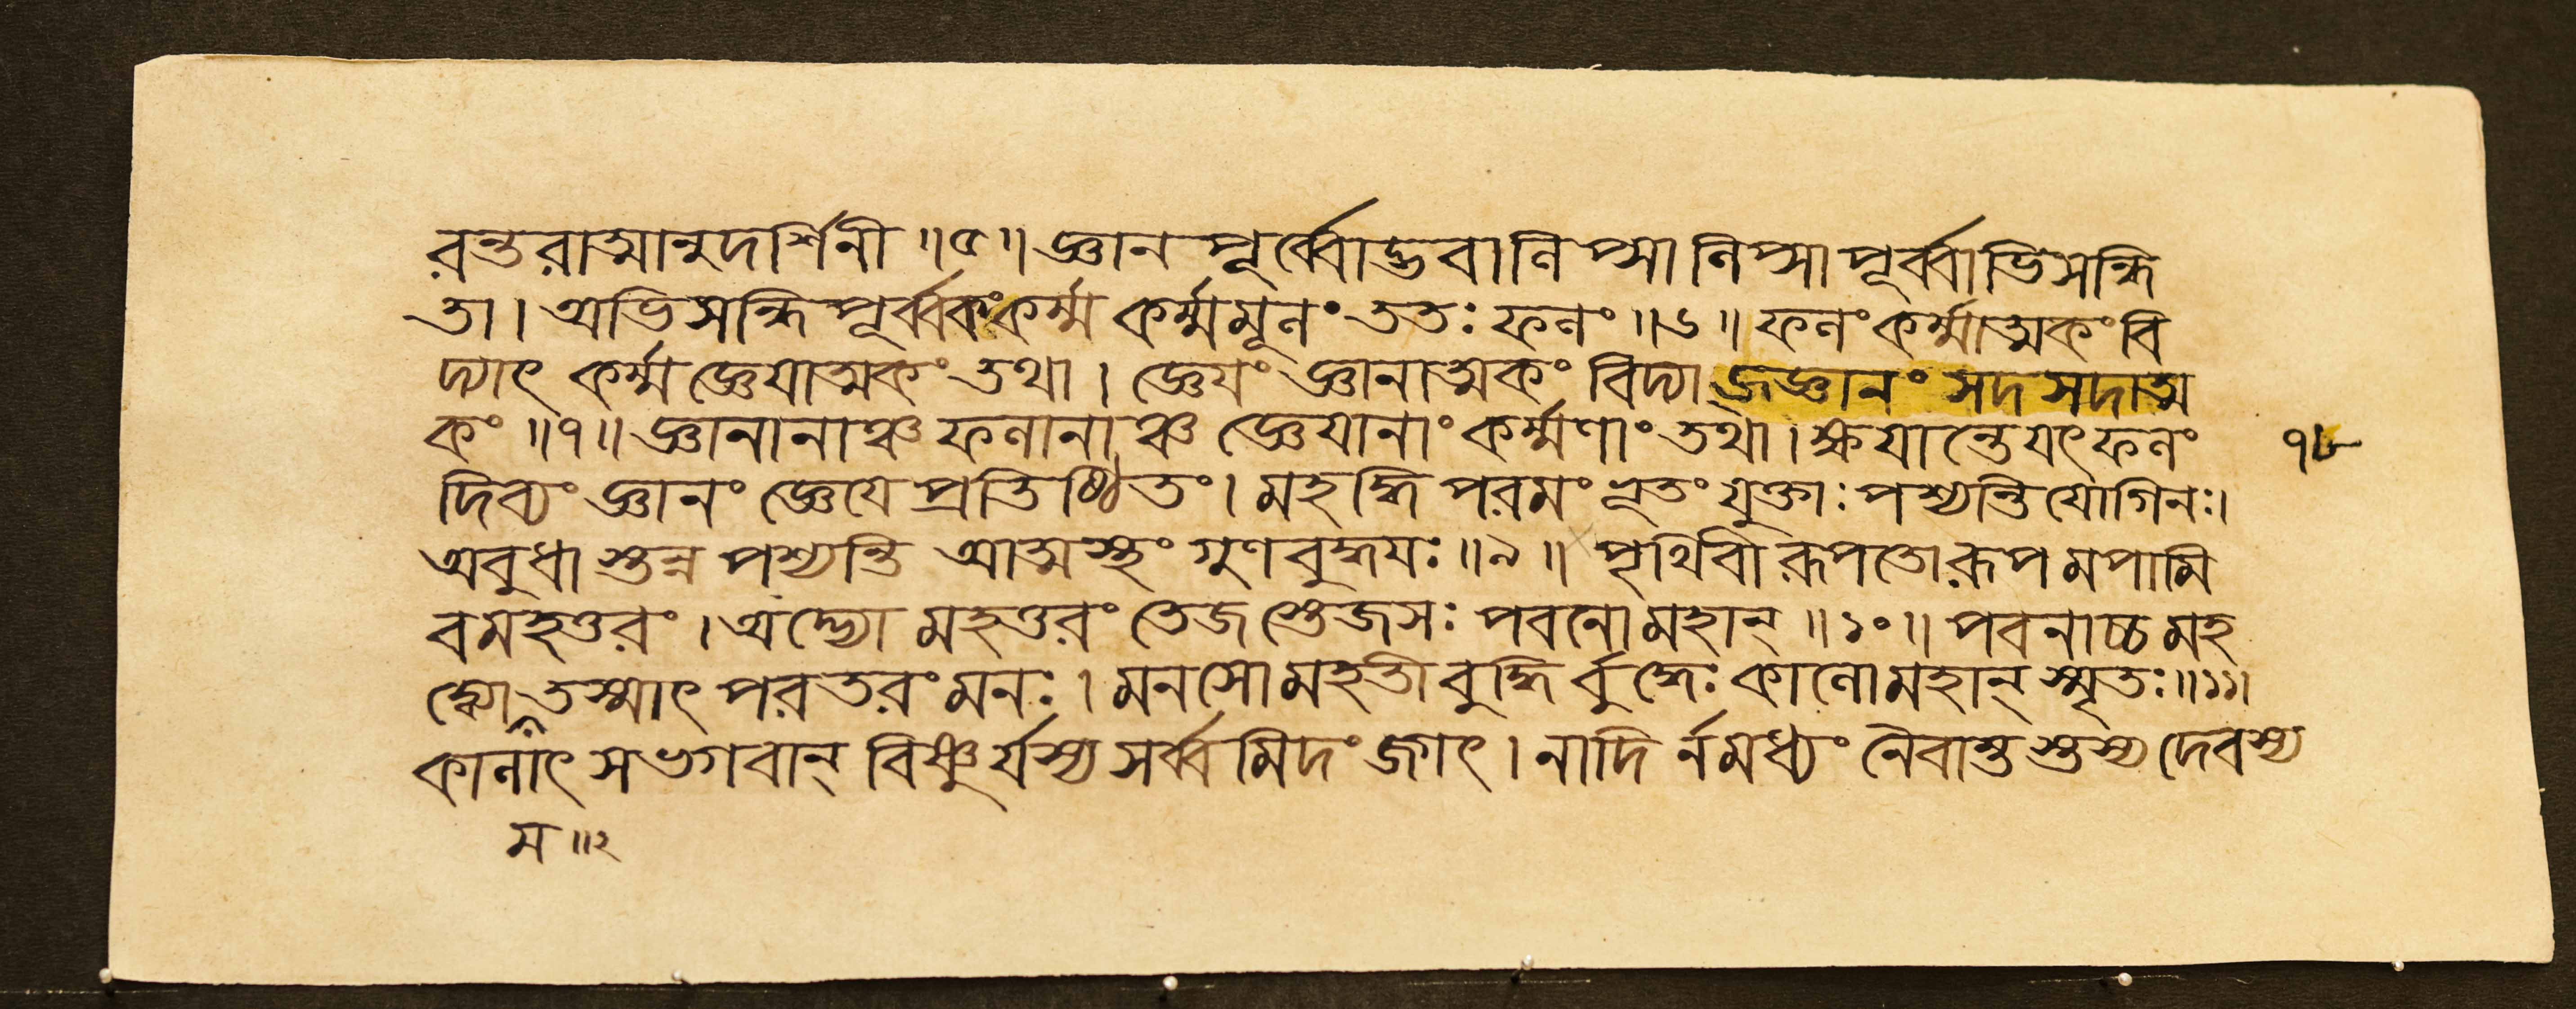 রন্তরাত্মানুদর্শিনী ॥৫॥ জ্ঞান পূর্ব্বোদ্ভবানিপ্সা নিপ্সা পূর্ব্বাভিসন্ধি
তা । অভিসন্ধি পূর্ব্বকং কর্ম্ম কর্ম্মমূলং ততঃ ফলং ॥৬॥ ফলং কর্ম্মাত্মকং বি
দ্যাৎ কর্ম্ম জ্ঞেয়াত্মকং তথা । জ্ঞেয়ং জ্ঞানাত্মকং বিদ্যাজ্জ্ঞানং সদসদাত্ম
কং ॥৭॥ জ্ঞানানাঞ্চ ফলানাঞ্চ জ্ঞেয়ানাং কর্ম্মণাং তথা । ক্ষয়ান্তে যৎ ফলং
৭৮
দিব্যং জ্ঞানং জ্ঞেয়ে প্রতিষ্ঠিতং । মহদ্ধি পরমং ভূতং যুক্তাঃ পশ্যন্তি যোগিনঃ ।
অবুধাস্তন্ন পশ্যন্তি আত্মস্থং গুণবুদ্ধয়ঃ ॥৯॥ পৃথিবীরূপতোরূপমপামি
বমহত্তরং । অদ্ভ্যো মহত্তরং তেজস্তেজসঃ পবনো মহান্ ॥১০॥ পবনাচ্চ মহ
দ্ব্যোম তস্মাৎ পরতরং মনঃ । মনসো মহতী বুদ্ধির্বুদ্ধেঃ কালো মহান্ স্মৃতঃ ॥১১॥
কালাৎ স ভগবান্ বিষ্ণুর্যস্য সর্ব্বমিদং জগৎ । নাদির্নমধ্যং নৈবান্তস্তস্য দেবস্য
ম ॥২